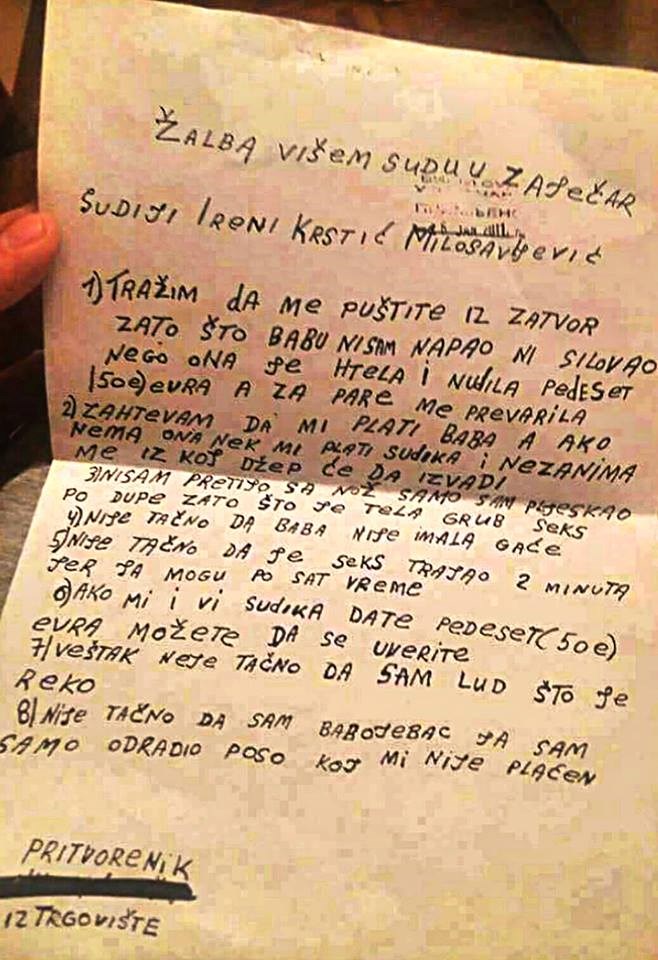 ŽALBA VIŠEM SUDU U ZAJEČAR
SUDIJI IRENI KRSTIĆ MILOSAVJEVIĆ
1) TRAŽIM DA ME PUŠTITE IZ ZATVOR
ZATO ŠTO BABU NISAM NAPAO NI SILOVAO
NEGO ONA JE HTELA I NUDILA PEDESET
(50e) EVRA A ZA PARE ME PREVARILA
2) ZAHTEVAM DA MI PLATI BABA A AKO
NEMA ONA NEK MI PLATI SUDIKA I NEZANIMA
ME IZ KOJ DŽEP ĆE DA IZVADI
3) NISAM PRETIJO SA NOŽ SAMO SAM PLJESKAO
PO DUPE ZATO ŠTO JE TELA GRUB SEKS
4) NIJE TAČNO DA BABA NIJE IMALA GAĆE
5) NIJE TAČNO DA JE SEKS TRAJAO 2 MINUTA
JER JA MOGU PO SAT VREME
6) AKO MI I VI SUDIKA DATE PEDESET (50e)
EVRA MOŽETE DA SE UVERITE
7) VEŠTAK NEJE TAČNO DA SAM LUD ŠTO JE
REKO
8) NIJE TAČNO DA SAM BABOJEBAC JA SAM
SAMO ODRADIO POSO KOJ MI NIJE PLAĆEN
PRITVORENIK
IZ TRGOVIŠTE